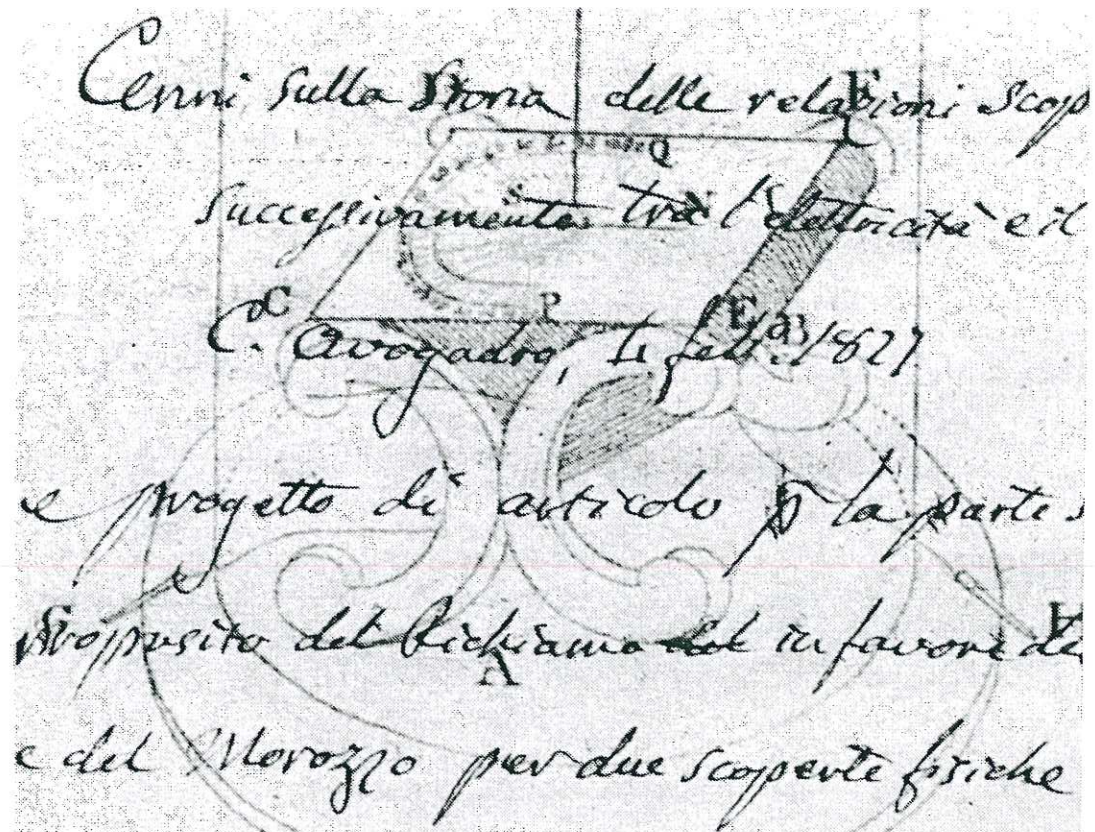 Cenni sulla Storia delle relazioni scop
successivamente tra l'elettricità e il
C. Avogadro, li febb. 1827
e progetto di articolo p la parte s
proposito del Richiamo del in favore de
e del Morozzo per due scoperte fisiche
E
Q
S
N
C
P
F
A